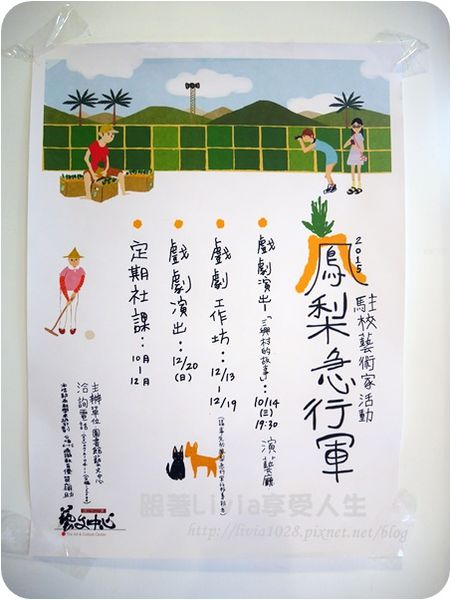 2015
駐校藝術家活動
鳳梨急行軍
戲劇演出-「三興村的故事」:10/14(三)19:30 演藝廳
戲劇工作坊:12/13-12/19
戲劇演出:12/20(日)
定期社課:10月-12月
主辦單位 圖書館藝文中心
洽詢電話
藝文中心
The Art & Culture Center
跟著Livia享受人生
http://livia1028.pixnet.net/blog